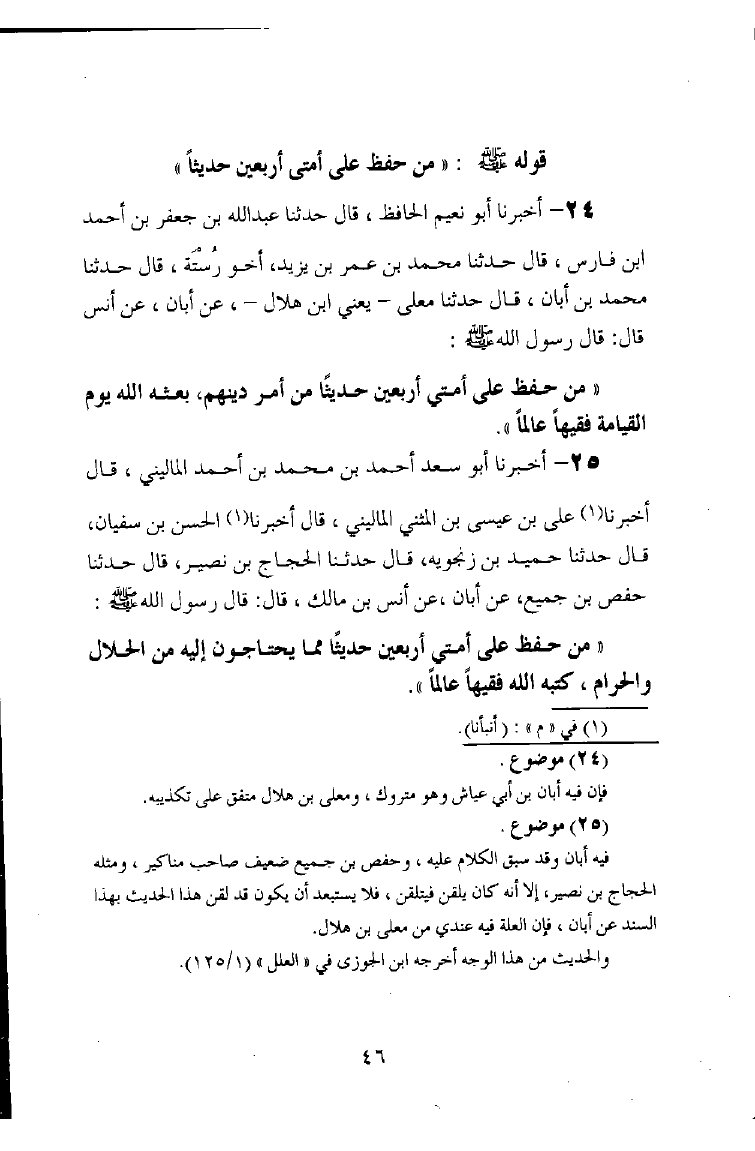 قوله ﷺ : « من حفظ على أمتى أربعين حديثاً »
٢٤- أخبرنا أبو نعيم الحافظ ، قال حدثنا عبدالله بن جعفر بن أحمد
ابن فارس ، قال حدثنا محمد بن عمر بن يزيد، أخو رُسْتَة ، قال حدثنا
محمد بن أبان ، قال حدثنا معلى – يعني ابن هلال – ، عن أبان ، عن أنس
قال: قال رسول الله ﷺ :
« من حفظ على أمتي أربعين حديثًا من أمر دينهم، بعثه الله يوم
القيامة فقيهاً عالماً ».
٢٥- أخبرنا أبو سعد أحمد بن محمد بن أحمد الماليني ، قال
أخبرنا(١) على بن عيسى بن المثني الماليني ، قال أخبرنا(١) الحسن بن سفيان،
قال حدثنا حميد بن زنجويه، قال حدثنا الحجاج بن نصير، قال حدثنا
حفص بن جميع، عن أبان ،عن أنس بن مالك ، قال: قال رسول الله ﷺ :
« من حفظ على أمتي أربعين حديثًا مما يحتاجون إليه من الحلال
والحرام ، كتبه الله فقيهاً عالماً ».
(١) في « م » : ( أنبأنا).
(٢٤) موضوع .
فإن فيه أبان بن أبي عياش وهو متروك ، ومعلى بن هلال متفق على تكذيبه.
(٢٥) موضوع .
فيه أبان وقد سبق الكلام عليه ، وحفص بن جميع ضعيف صاحب مناكير ، ومثله
الحجاج بن نصير، إلا أنه كان يلقن فيتلقن ، فلا يستبعد أن يكون قد لقن هذا الحديث بهذا
السند عن أبان ، فإن العلة فيه عندي من معلى بن هلال.
والحديث من هذا الوجه أخرجه ابن الجوزى في « العلل » (١٢٥/١).
٤٦